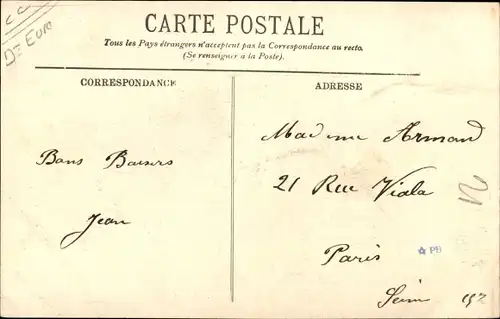 CARTE POSTALE
Tous les Pays étrangers n'acceptent pas la Correspondance au recto.
(Se renseigner a la Poste).
CORRESPONDANCE
ADRESSE
Bons Baisers
Jean
Madame Armand
21 Rue Viala
Paris
Seine
PB